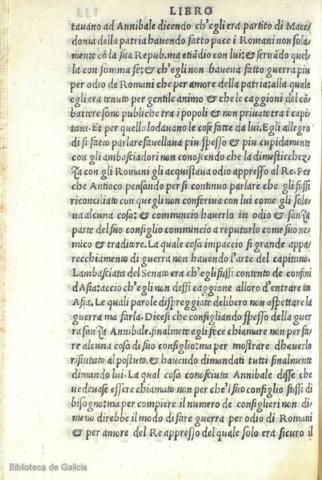 LIBRO
tauano ad Annibale dicendo ch'egli era partito di Mace
donia della patria hauendo fatto pace i Romani non sola
mente cõ la sua Repub. ma etiãdio con lui: & seruãdo quel
la con somma fe: & ch'egli non haueua fatto guerra piu
per odio de Romani che per amore della patria: alla quale
egli era tenuto per gentile animo & che le caggioni del cõ
battere sono publiche tra i popoli & non priuate tra i capi
tani. Et per quello lodauano le cose fatte da lui. Egli allegro
di si fatto parlare fauellaua piu spesso & piu cupidamente
con gli ambasciadori non conoscendo che la dimestichez
za con gli Romani gli acquistaua odio appresso al Re. Per
che Antioco pensando per si continuo parlare che gli fussi
riconciliato con que gli non conferiua con lui come gli sole
ua alcuna cosa: & comuncio hauerlo in odio & sanza
parte del suo consiglio comuncio a reputarlo come suo ne
mico & traditore. La qual cosa impaccio si grande appa
recchiamento di guerra non hauendo l'arte del capitano.
L'ambasciata del Senato era ch'egli fussi contento de confini
d'Asia accio ch'egli non dessi caggione alloro d'entrare in
Asia. Le quali parole dispreggiate delibero non aspettare la
guerra ma farla. Dicesi che consigliando spesso della guer
ra sanza Annibale. finalmente egli fece chiamare non per fa
re alcuna cosa di suo consiglio: ma per mostrare d'hauerlo
rifiutato al postuto. & hauendo dimandati tutti finalmente
dimando lui. La qual cosa conosciuta Annibale disse che
uedeua essere chiamato non per che'l suo consiglio fussi di
bisogno: ma per compiere il numero de consiglieri non di
meno direbbe il modo di fare guerra per odio di Romani
& per amore del Re appresso del quale solo era sicuro il
Biblioteca de Galicia